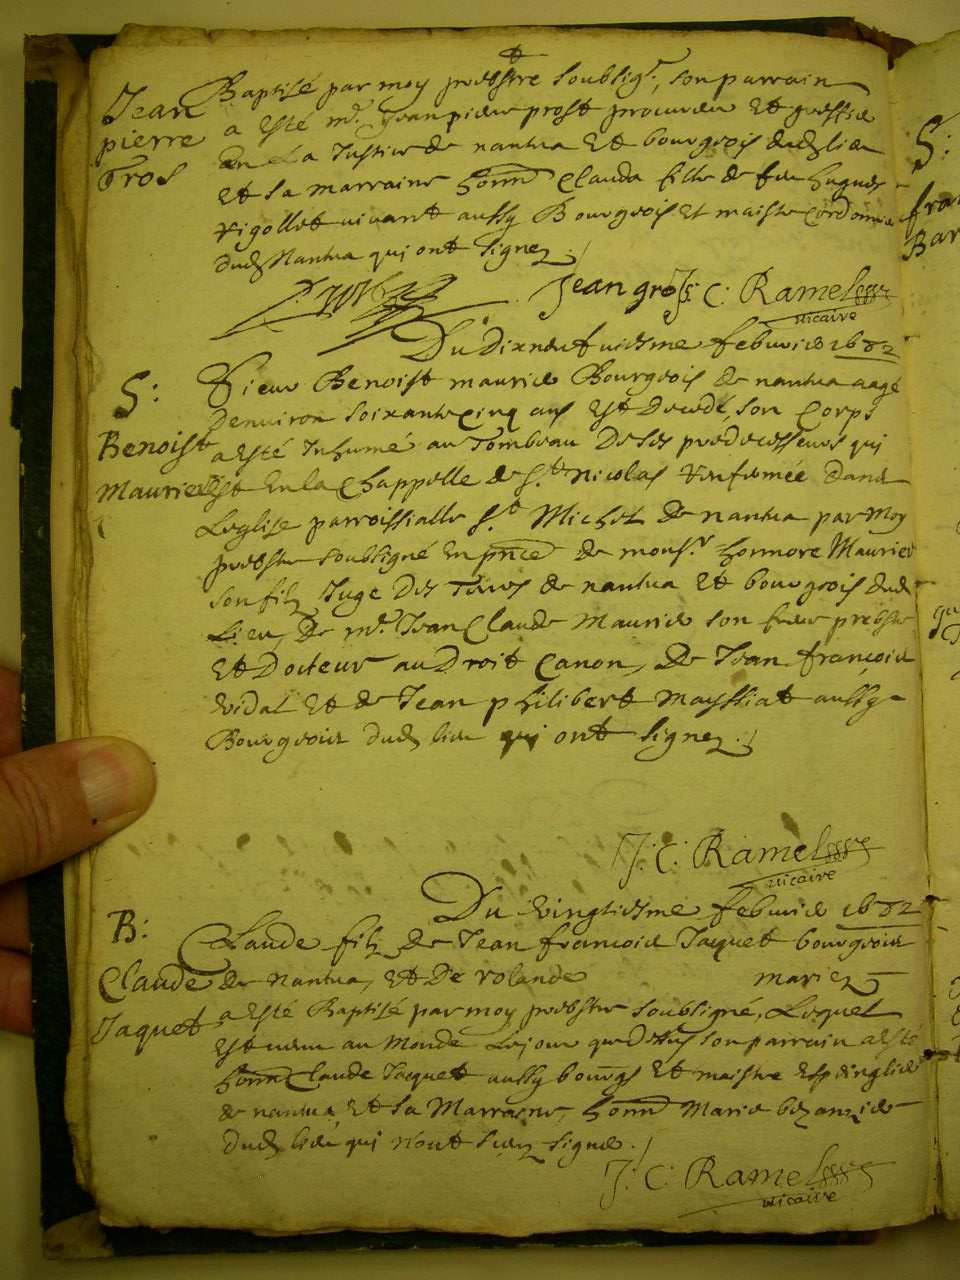 Jean
pierre
Gros
Baptisé par moy prebstre soubsigr, son parrain
a esté mr. Jean pierre prost procureur Et greffier
En La Justice de nantua Et bourgeois dud lieu
Et sa marraine honn Clauda fille de feu hugues
rigollet vivant aussy Bourgeois Et maistre Cordonnier
dud Nantua qui ont signez
Jean gros J: C: Ramel
vicaire
Du Dixneufuiesme febvrier 1682
S:
Benoist
Maurier
Sieur Benoist maurier Bourgeois de nantua aagé
Denviron soixante Cinq ans Est Decedé, son Corps
a esté Inhumé au Tombeau De ses predecesseurs qui
Est En la Chappelle de St. Nicolas renfermée dans
Leglise parroissialle St Michel de nantua par Moy
prebstre soubsigné En pnce de monsr. honnore Maurier
son filz Juge Des Terres de nantua Et bourgeois dud
Lieu, De mr. Jean Claude Maurier son frere prebstre
Et Docteur au Droit Canon, De Jean françois
vidal Et de Jean philibert Mayssiat aussy
Bourgeois dud lieu qui ont signez
J: C: Ramel
vicaire
Du vingtiesme febvrier 1682
B:
Claude
Jaquet
Claude filz de Jean francois Jaquet bourgeois
de nantua, Et De rolande mariez
a esté Baptisé par moy prebstre soubsigné, Lequel
Est venu au Monde Le jour que Dessus son parrain a esté
honn Claude Jacquet aussy bourgs Et maistre Espinglier
de nantua Et sa Marraine, honn Marie
dud lieu qui n'ont sceu signer.
J: C: Ramel
vicaire